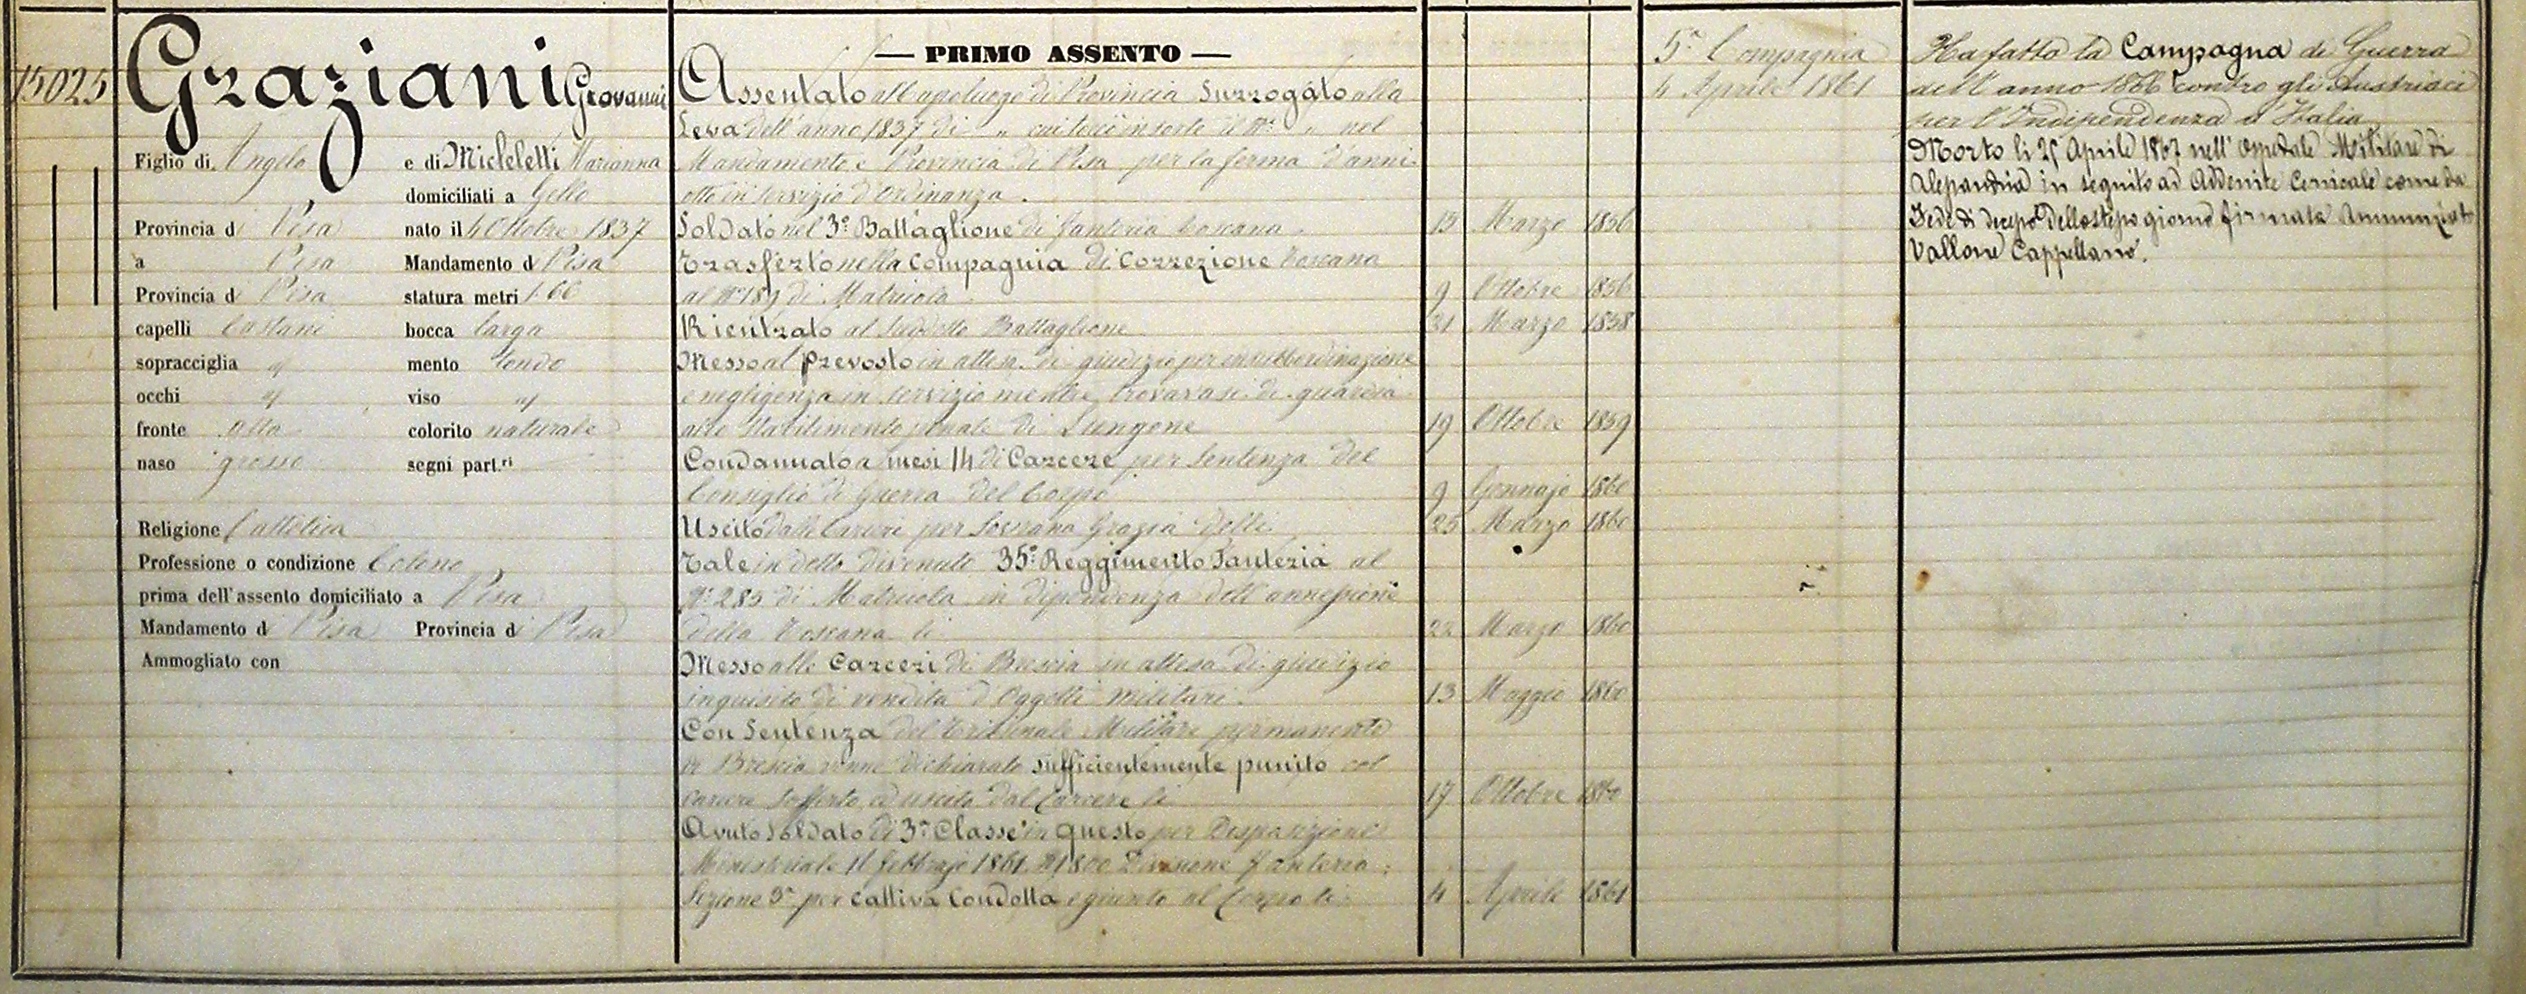 15025
Graziani Giovanni
Figlio di Angelo e di Micheletti Marianna
domiciliati a Gello
Provincia di Pisa nato il 4 Ottobre 1837
a Pisa Mandamento di Pisa
Provincia di Pisa statura metri 1.66
capelli Castani bocca larga
sopracciglia " mento tondo
occhi " viso "
fronte alta colorito naturale
naso grosso segni part.ri
Religione Cattolica
Professione o condizione Colono
prima dell'assento domiciliato a Pisa
Mandamento di Pisa Provincia di Pisa
Ammogliato con
— PRIMO ASSENTO —
Assentato al Capoluogo di Provincia Surrogato alla
Leva dell'anno 1837 di " cui toccò in sorte il N.° " nel
Mandamento e Provincia di Pisa per la ferma d'anni
otto in servizio d'Ordinanza.
Soldato nel 3° Battaglione di fanteria toscana. 15 Marzo 1856
Trasferto nella Compagnia di Correzione toscana
al N° 189 di Matricola 9 Ottobre 1856
Rientrato al suddetto Battaglione 31 Marzo 1858
Messo al prevosto in attesa di giudizio per insubbordinazione
e negligenza in servizio mentre trovavasi di guardia
allo Stabilimento penale di Lungone 19 Ottobre 1859
Condannato a mesi 14 di Carcere per Sentenza del
Consiglio di Guerra del Corpo 9 Gennajo 1860
Uscito dalle Carceri per Sovrana Grazia delli 25 Marzo 1860
Tale in detto divenuto 35° Reggimento Fanteria al
N° 285 di Matricola in dipendenza dell'annessione
della Toscana li 22 Marzo 1860
Messo alle Carceri di Brescia in attesa di giudizio
inquisito di vendita d'Oggetti Militari. 13 Maggio 1860
Con Sentenza del Tribunale Militare permanente
di Brescia venne dichiarato sufficientemente punito col
carcere sofferto, ed uscito dal Carcere li 17 Ottobre 1860
Avuto Soldato di 3ª Classe in questo per Disposizione
Ministeriale 11 febbrajo 1861 N 1800 Divisione fanteria
Sezione 3ª per cattiva Condotta e giunto al Corpo li 4 Aprile 1861
5ª Compagnia
4 Aprile 1861
Ha fatto la Campagna di Guerra
dell'anno 1866 contro gli Austriaci
per l'Indipendenza d'Italia
Morto li 25 Aprile 1867 nell'Ospedale Militare di
Alessandria in seguito ad Addenite Cervicale come da
Fede di decesso dello stesso giorno firmata Annunziato
Vallone Cappellano.